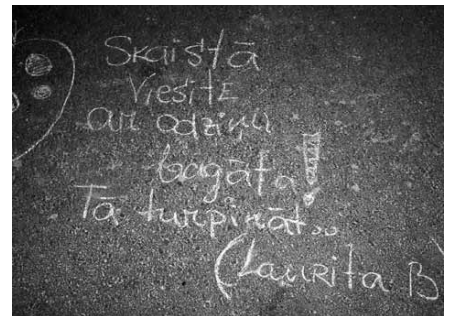 Skaistā
Viesīte
ar odziņu
bagāta!
Tā turpināt..
(Laurita B)